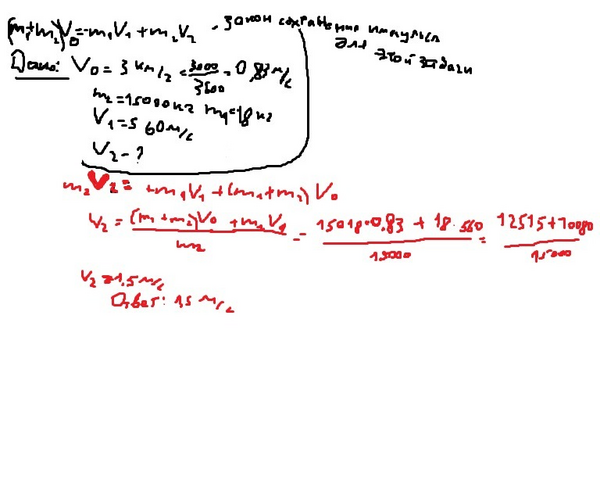 (m₁+m₂)V₀=-m₁V₁+m₂V₂ - закон сохранения импульса
для этой задачи
Дано: V₀=3 км/ч=3000/3600=0,83 м/с
m₂=15000кг m₁=18 кг
V₁=560м/с
V₂-?
m₂V₂=+m₁V₁+(m₁+m₂)V₀
V₂=((m₁+m₂)V₀+m₁V₁)/m₂=(15018·0,83+18·560)/15000=(12515+10080)/15000
V₂=1,5м/с
Ответ: 1,5 м/с